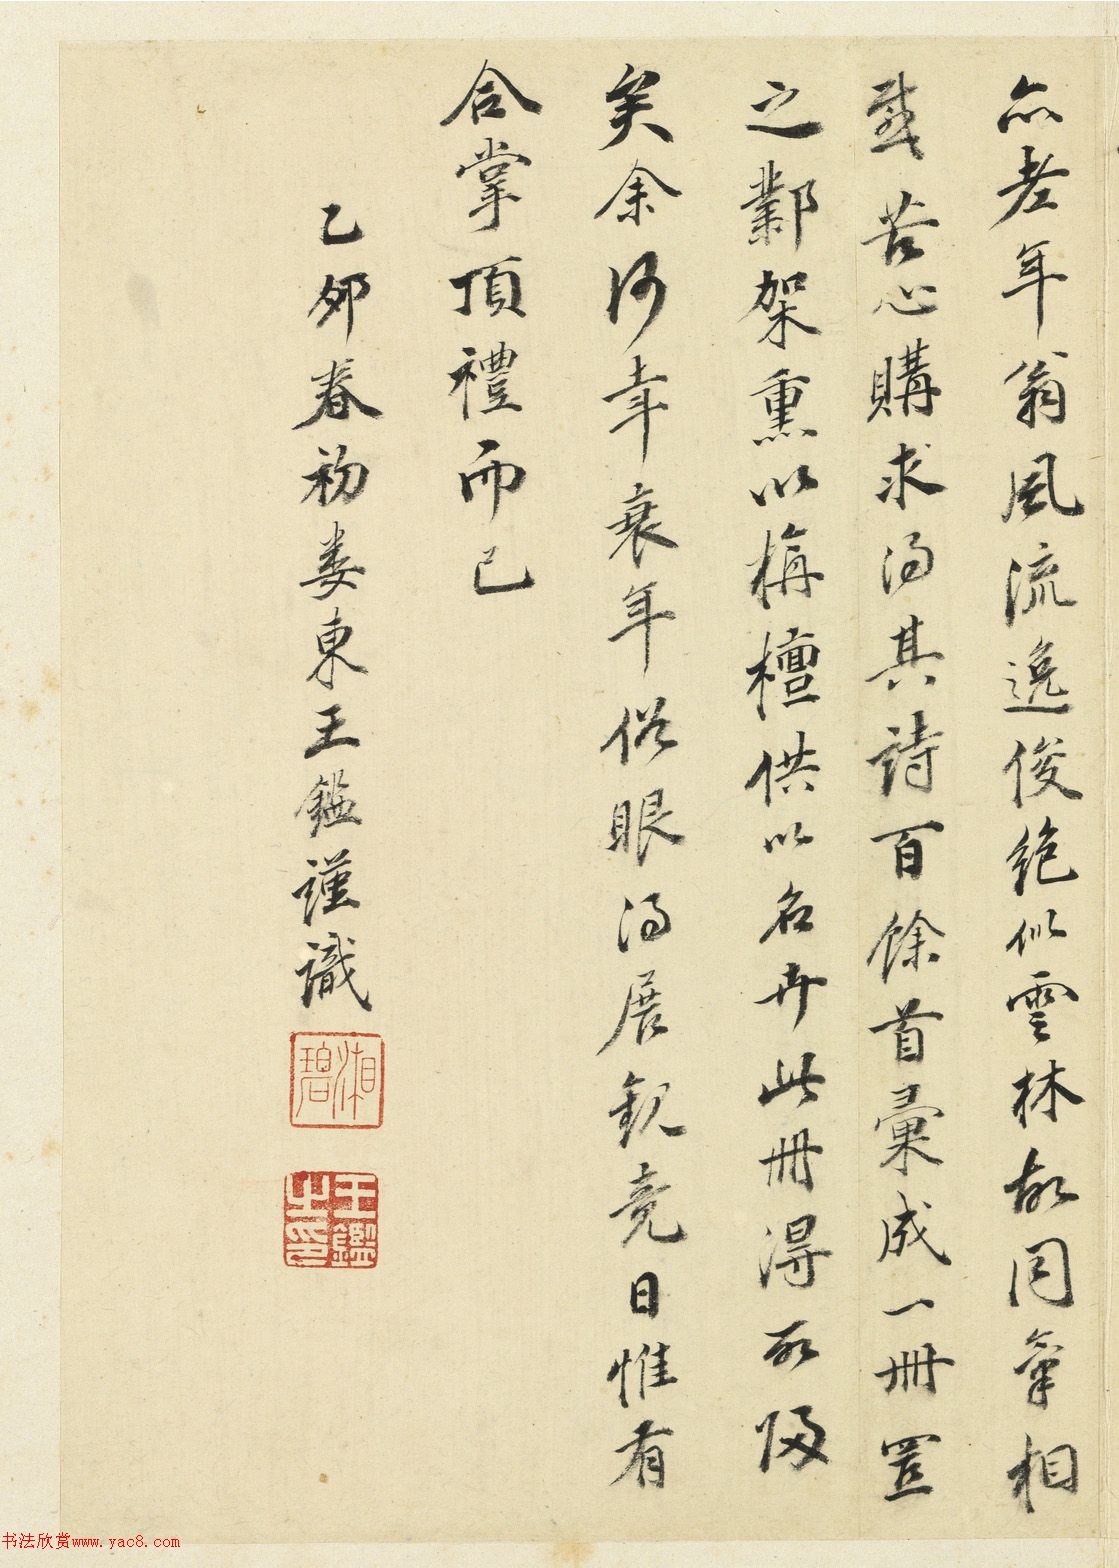 亦老年翁風流逸俊絶似雲林故同氣相
感苦心購求得其詩百餘首彙成一冊置
之鄴架熏以栴檀供以名卉此冊得所歸
矣余何幸衰年俗眼得展觀竟日惟有
合掌頂禮而已
乙卯春初婁東王鑑謹識
湘碧
王鑑之印
书法欣赏www.yac8.com